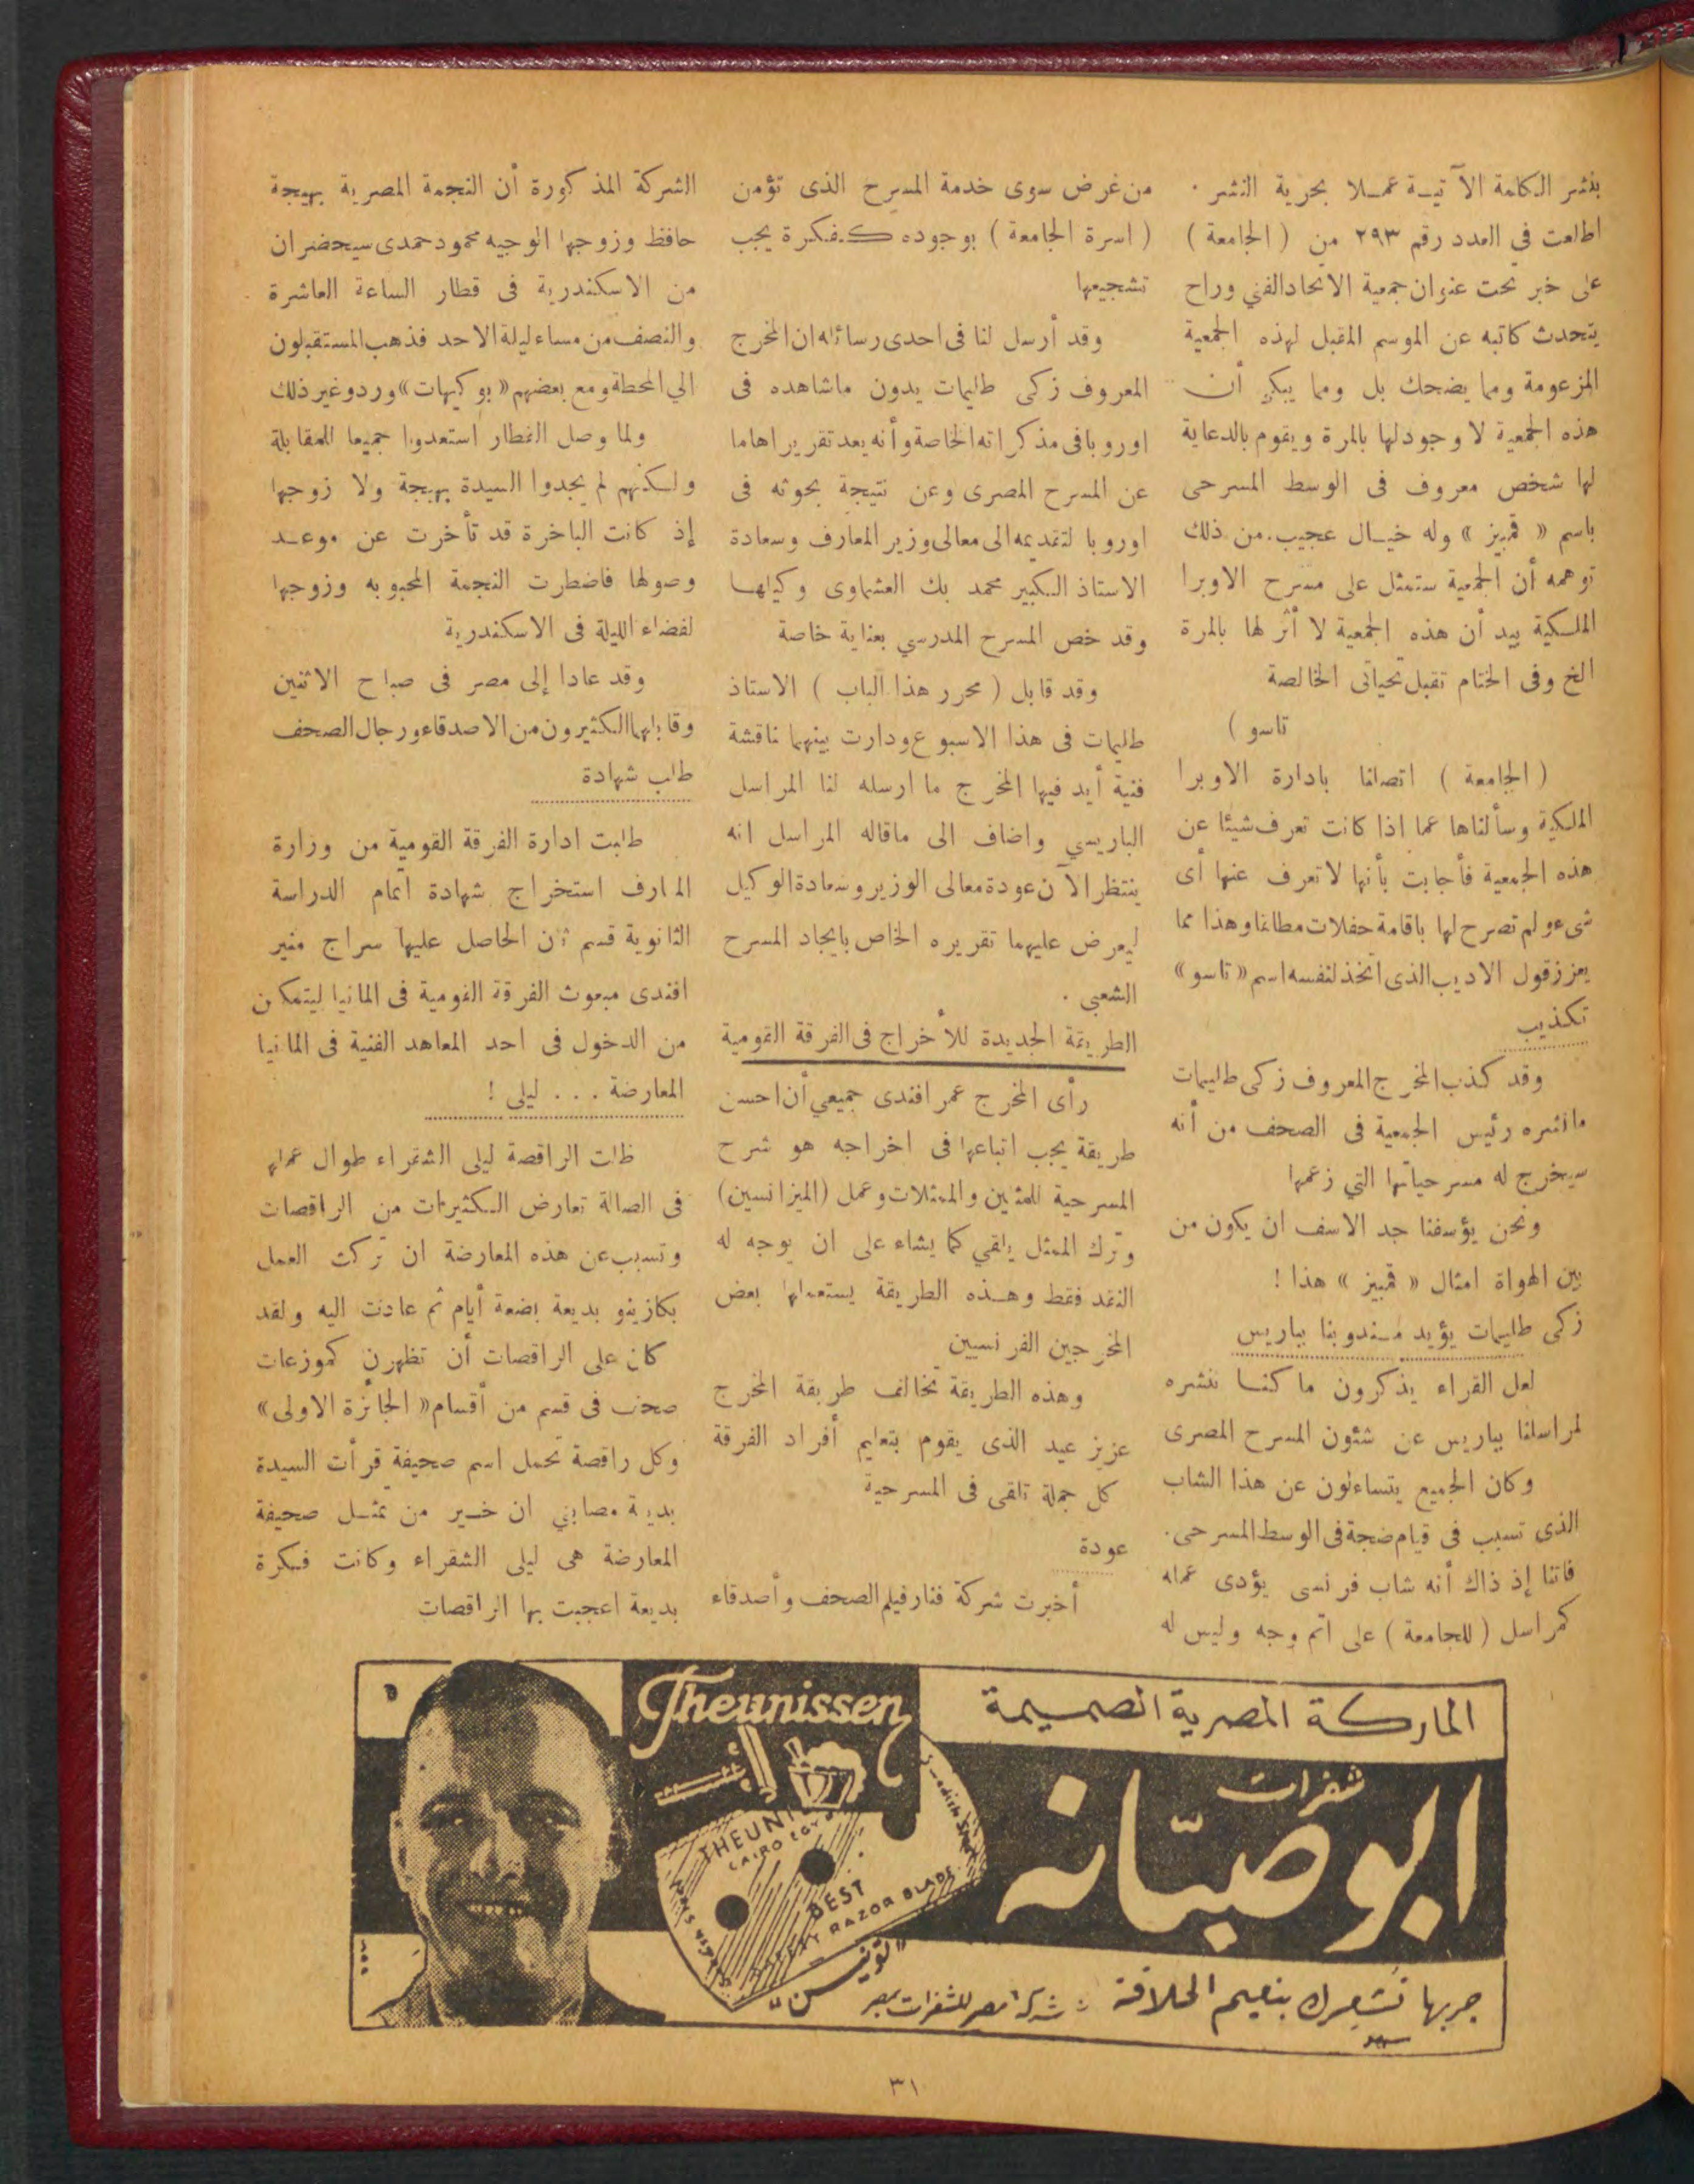 بنشر الكلمة الآتيـة عمـلا بحرية النشر .
اطلعت في العدد رقم ٢٩٣ من ( الجامعة )
على خبر تحت عنوان جمعية الاتحاد الفني وراح
يتحدث كاتبه عن الموسم المقبل لهذه الجمعية
المزعومة ومما يضحك بل ومما يبكى أن
هذه الجمعية لا وجود لها بالمرة ويقوم بالدعاية
لها شخص معروف فى الوسط المسرحى
باسم « قمبيز » وله خيـال عجيب . من ذلك
توهمه أن الجمعية ستمثل على مسرح الاوبرا
الملكية بيد أن هذه الجمعية لا أثر لها بالمرة
الخ وفى الختام تقبل تحياتى الخالصة
تاسو )
( الجامعة ) اتصلنا بادارة الاوبرا
الملكية وسألناها عما اذا كانت تعرف شيئا عن
هذه الجمعية فأجابت بأنها لا تعرف عنها أى
شىء ولم تصرح لها باقامة حفلات مطلقا وهذا مما
يعزز قول الاديب الذى اتخذ لنفسه اسم « تاسو »
تكذيب
وقد كذب المخرج المعروف زكى طليمات
مانشره رئيس الجمعية فى الصحف من أنه
سيخرج له مسرحياتها التي زعمها
ونحن يؤسفنا جد الاسف ان يكون من
بين الهواة امثال « قمبيز » هذا !
زكى طليمات يؤيد مندوبنا بباريس
لعل القراء يذكرون ما كنـا ننشره
لمراسلنا بباريس عن شئون المسرح المصرى
وكان الجميع يتساءلون عن هذا الشاب
الذى تسبب فى قيام ضجة فى الوسط المسرحى .
فاتنا إذ ذاك أنه شاب فرنسى يؤدى عمله
كمراسل ( للجامعة ) على اتم وجه وليس له
من غرض سوى خدمة المسرح الذى تؤمن
( اسرة الجامعة ) بوجوده كفكرة يجب
تشجيعها
وقد أرسل لنا فى احدى رسائله ان المخرج
المعروف زكى طليمات يدون ماشاهده فى
اوروبا فى مذكراته الخاصة وأنه يعد تقريرا هاما
عن المسرح المصرى وعن نتيجة بحوثه فى
اوروبا لتقديمه الى معالى وزير المعارف وسعادة
الاستاذ الكبير محمد بك العشماوى وكيلهـا
وقد خص المسرح المدرسي بعناية خاصة
وقد قابل ( محرر هذا الباب ) الاستاذ
طليمات فى هذا الاسبوع ودارت بينهما ناقشة
فنية أيد فيها المخرج ما ارسله لنا المراسل
الباريسي واضاف الى ماقاله المراسل انه
ينتظر الآن عودة معالى الوزير وسعادة الوكيل
ليعرض عليهما تقريره الخاص بايجاد المسرح
الشعبي .
الطريقة الجديدة للأخراج فى الفرقة القومية
رأى المخرج عمر افندى جميعي أن احسن
طريقة يجب اتباعها فى اخراجه هو شرح
المسرحية للمثلين والممثلات وعمل (الميزانسين)
وترك الممثل يلقي كما يشاء على ان يوجه له
النقد فقط وهـذه الطريقة يستعملها بعض
المخرجين الفرنسيين
وهذه الطريقة تخالف طريقة المخرج
عزيز عيد الذى يقوم بتعليم أفراد الفرقة
كل جملة تلقى فى المسرحية
عودة
أخبرت شركة فنار فيلم الصحف وأصدقاء
الشركة المذكورة أن النجمة المصرية بهيجة
حافظ وزوجها الوجيه محمود حمدى سيحضران
من الاسكندرية فى قطار الساعة العاشرة
والنصف من مساء ليلة الاحد فذهب المستقبلون
الي المحطة ومع بعضهم « بوكيهات » ورد وغير ذلك
ولما وصل القطار استعدوا جميعا للمقابلة
ولكنهم لم يجدوا السيدة بهيجة ولا زوجها
إذ كانت الباخرة قد تأخرت عن موعـد
وصولها فاضطرت النجمة المحبوبه وزوجها
لقضاء الليلة فى الاسكندرية
وقد عادا إلى مصر فى صباح الاثنين
وقابلهما الكثيرون من الاصدقاء ورجال الصحف
طلب شهادة
طلبت ادارة الفرقة القومية من وزارة
المعارف استخراج شهادة اتمام الدراسة
الثانوية قسم ثان الحاصل عليها سراج منير
افندى مبعوث الفرقة القومية فى المانيا ليتمكن
من الدخول فى احد المعاهد الفنية فى المانيا
المعارضة . . . ليلى !
ظلت الراقصة ليلى الشقراء طوال عملها
فى الصالة تعارض الكثيرات من الراقصات
وتسبب عن هذه المعارضة ان تركت العمل
بكازينو بديعة بضعة أيام ثم عادت اليه ولقد
كان على الراقصات أن تظهرن كموزعات
صحف فى قسم من أقسام « الجائزة الاولى »
وكل راقصة تحمل اسم صحيفة قرأت السيدة
بديعة مصابني ان خـير من تمثـل صحيفة
المعارضة هى ليلى الشقراء وكانت فكرة
بديعة اعجبت بها الراقصات
الماركة المصرية الصميمة
شفرات
ابو صبّانه
جربها تشعرك بنعيم الحلاقة : شركة مصر للشفرات بمصر
"تونيسن"
Theunissen
THEUNI
CAIRO EGY
BEST
SAFETY RAZOR BLADE
٣١